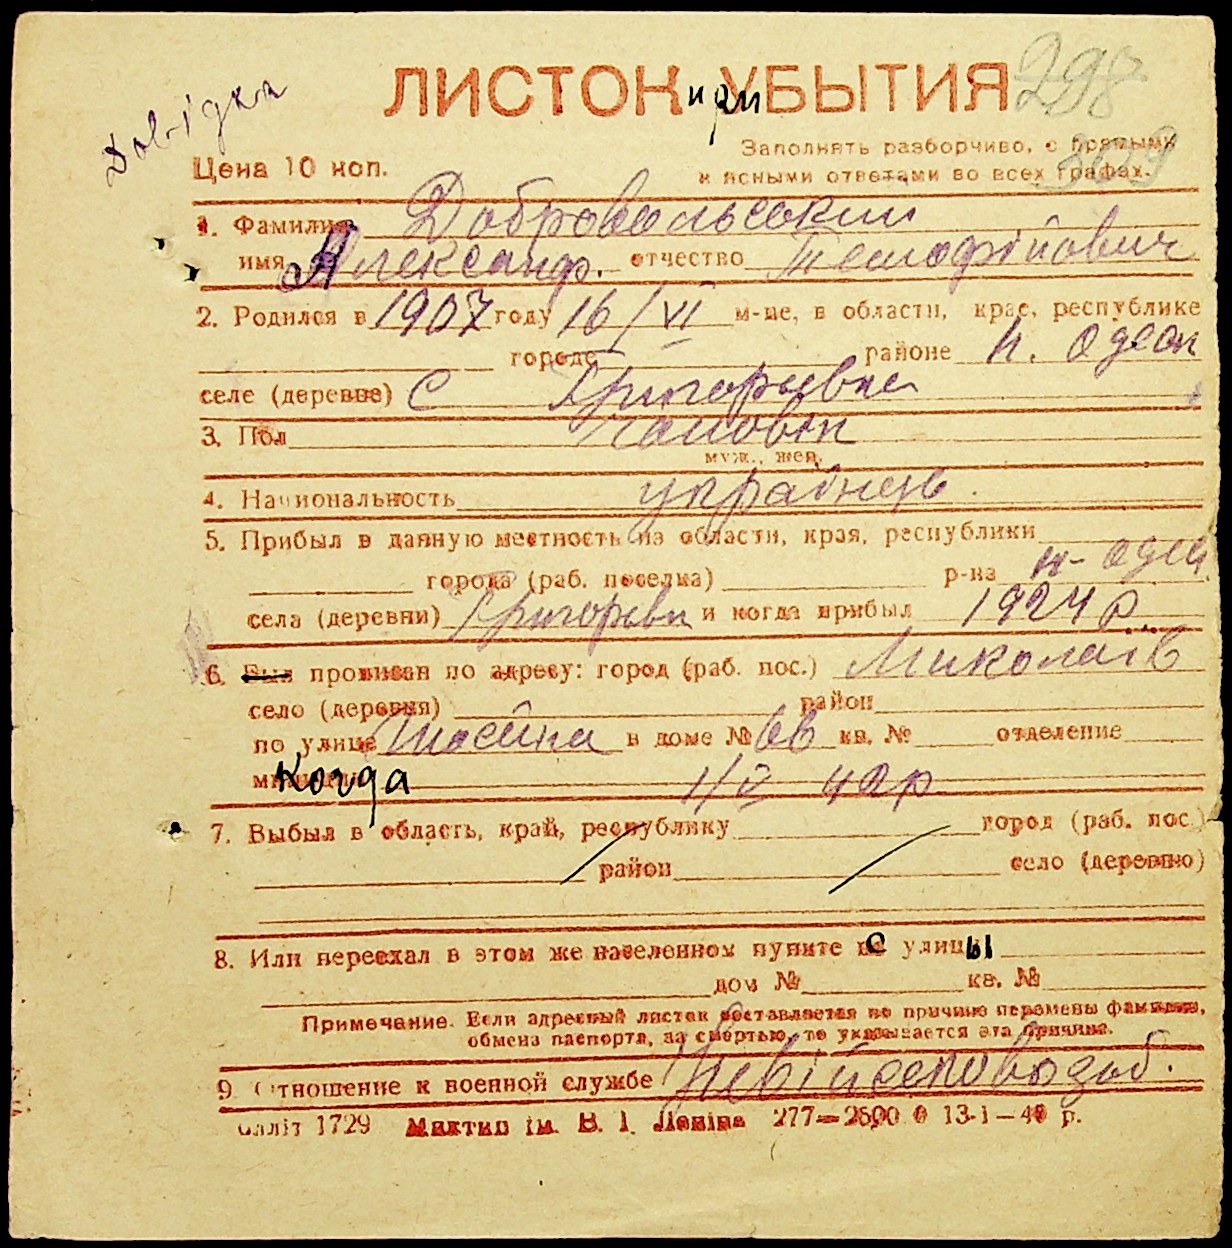 298
ЛИСТОК УБЫТИЯ
Довідка
309
Цена 10 коп.
Заполнять разборчиво, с прямыми
и ясными ответами во всех графах.
1. Фамилия Добровольський
имя Александр. отчество Тимофійович
2. Родился в 1907 году 16/VI м-це, в области, крае, республике
городе районе Н. Одеськ
селе (деревне) С Григорівка
3. Пол чоловік
муж., жен.
4. Национальность українець.
5. Прибыл в данную местность из области, края, республики
города (раб. поселка) р-на Н-Одес
села (деревни) Григорівки и когда прибыл 1924 р.
6. Был прописан по адресу: город (раб. пос.) Миколаїв
село (деревня) район
по улице в доме № 6в кв. № отделение
Когда 1/V 42 р
7. Выбыл в область, край, республику город (раб. пос.)
район село (деревню)
8. Или переехал в этом же населенном пункте с улицы
дом № кв. №
Примечание. Если адресный листок составляется по причине перемены фамилии,
обмена паспорта, за смертью, то указывается эта причина.
9. Отношение к военной службе Невійськовозоб.
Сапліт 1729 Миктип ім. В. І. Леніна 277—2500 0 13-1-40 р.